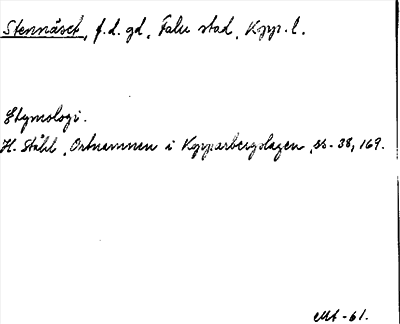 Stennäset, f.d. gd, Falu stad, Kopp. l.
Etymologi.
H. Ståhl, Ortnamnen i Kopparbergslagen, ss. 38, 169.
MA-61.